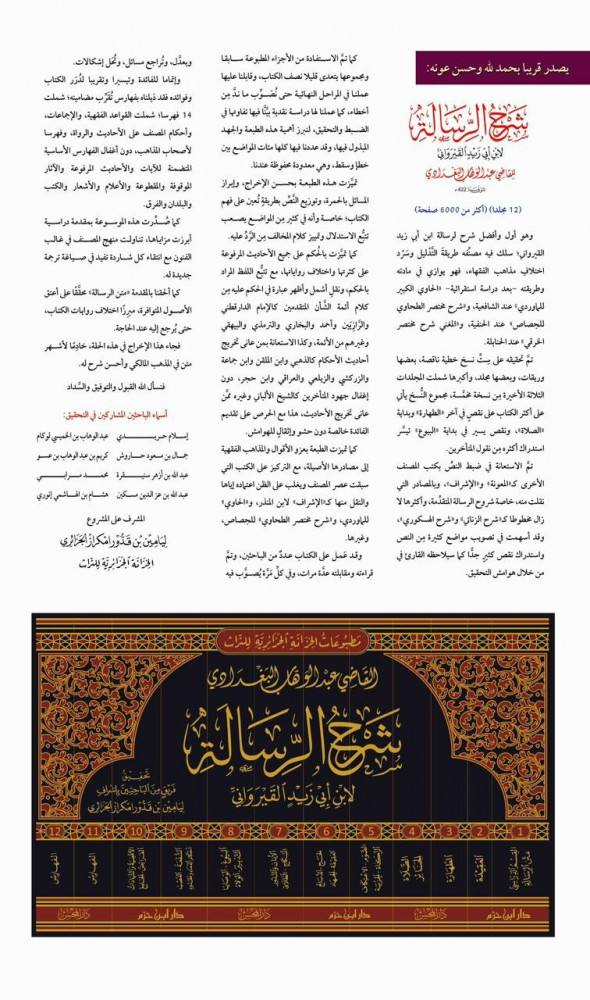 يصدر قريبا بحمد لله وحسن عونه:
شرح الرسالة
لابن أبي زيد القيرواني
للقاضي عبد الوهاب البغدادي
(12 مجلدا) (أكثر من 6000 صفحة)
وهو أول وأفضل شرح لرسالة ابن أبي زيد
القيرواني؛ سلك فيه مصنِّفه طريقةَ التَّدليل وسَرْد
اختلافِ مذاهب الفقهاء، فهو يوازي في مادته
وطريقته -بعد دراسة استقرائية- «الحاوي الكبير
للماوردي» عند الشافعية، و«شرح مختصر الطحاوي
للجصاص» عند الحنفية، و«المغني شرح مختصر
الخرقي» عند الحنابلة.
تمَّ تحقيقه على سِتِّ نسخ خطية ناقصة، بعضها
وريقات، وبعضها مجلد، وأكبرها شملت المجلدات
الثلاثة الأخيرة من نسخة مخمَّسة، مجموع النُّسخ يأتي
على أكثر الكتاب على نقصٍ في آخر «الطهارة» وبداية
«الصلاة»، ونقص يسير في بداية «البيوع» تيسَّر
استدراك أكثره من نقول المتأخرين.
تمَّ الاستعانة في ضبط النصِّ بكتب المصنف
الأخرى كـ«المعونة» و«الإشراف»، وبالمصادر التي
نقلت منه، خاصة شروح الرسالة المتقدِّمة، وأكثرها لا
زال مخطوطا كـ«شرح الزناتي» و«شرح الهسكوري»،
وقد أسهمت في تصويب مواضع كثيرة من النص
واستدراك نقص كثيرٍ جدًّا كما سيلاحظه القارئ في
من خلال هوامش التحقيق.
كما تمَّ الاستفادة من الأجزاء المطبوعة سابقا
ومجموعها يتعدى قليلا نصف الكتاب، وقابلنا عليها
عملنا في المراحل النهائية حتى نُصَوِّب ما ندَّ مِن
أخطاء، كما عملنا لها دراسة نقدية بيَّنَّا فيها تفاوتها في
الضبط والتحقيق، لنبرز أهمية هذه الطبعة والجهد
المبذول فيها، وقد عددنا فيها كلها مئات المواضع بين
خطإ وسقط، وهي معدودة محفوظة عندنا.
تميَّزت هذه الطبعة بحسن الإخراج، وإبراز
المسائل بالحمرة، وتوزيع النَّصِّ بطريقةٍ تُعين على فهم
الكتاب؛ خاصة وأنه في كثير مِن المواضع يصعب
تتبُّع الاستدلال وتمييز كلام المخالف مِن الرَّدِّ عليه.
كما تميَّزت بالحُكم على جميع الأحاديث المرفوعة
على كثرتها واختلاف رواياتها، مع تتبُّع اللفظ المراد
بالحكم، ونقل أشمل وأظهر عبارة في الحكم عليه مِن
كلام أئمة الشَّأن المتقدمين كالإمام الدارقطني
والرَّازِيَّين وأحمد والبخاري والترمذي والبيهقي
وغيرهم من الأئمة، وكذا الاستعانة بمن عانى تخريج
أحاديث الأحكام كالذهبي وابن الملقن وابن جماعة
والزركشي والزيلعي والعراقي وابن حجر، دون
إغفال جهود المتأخرين كالشيخ الألباني وغيره ممَّن
عانى تخريج الأحاديث، هذا مع الحرص على تقديم
الفائدة خالصة دون حشو وإثقال للهوامش.
كما تميزت الطبعة بعزو الأقوال والمذاهب الفقهية
إلى مصادرها الأصيلة، مع التركيز على الكتب التي
سبقت عصر المصنف ويغلب على الظن اعتماده إياها
والنقل منها كـ«الإشراف» لابن المنذر، و«الحاوي»
للماوردي، و«شرح مختصر الطحاوي» للجصاص،
وغيرها.
وقد عَمل على الكتاب عددٌ من الباحثين، وتمَّ
قراءته ومقابلته عدَّة مرات، وفي كلِّ مَرَّة يُصوَّب فيه
ويعدَّل، وتُراجع مسائل، وتُحَل إشكالات.
وإتماما للفائدة وتيسيرا وتقريبا لدُرَر الكتاب
وفوائده فقد ذيلناه بفهارس تُقَرِّب مضامينه؛ شملت
14 فهرسا؛ شملت القواعد الفقهية، والإجماعات،
وأحكام المصنف على الأحاديث والرواة، وفهرسا
لأصحاب المذاهب، دون إغفال الفهارس الأساسية
المتضمنة للآيات والأحاديث المرفوعة والآثار
الموقوفة والمقطوعة والأعلام والأشعار والكتب
والبلدان والفرق.
كما صُدِّرت هذه الموسوعة بمقدمة دراسية
أبرزت مزاياها، تناولت منهج المصنف في غالب
الفنون مع انتقاء كل شاردة تفيد في صياغة ترجمة
جديدة له.
كما ألحقنا بالمقدمة «متن الرسالة» محقَّقًا على أعتق
الأصول المتوافرة، مبرِزًا اختلاف روايات الكتاب،
حتى يُرجع إليه عند الحاجة.
فجاء هذا الإخراج في هذه الحلة، خادِمًا لأشهر
متن في المذهب المالكي وأحسن شرح له.
فنسأل الله القبول والتوفيق والسَّداد
أسماء الباحثين المشاركين في التحقيق:
إسلام حريدي عبد الوهاب بن الحميسي لوكام
جمال بن سعود حاروش كريم بن عبد الوهاب بن عو
عبد الله بن أزهر سنيقرة محمد سرابي
عبد الله بن عز الدين مسكين هشام بن الهاشمي إنوري
المشرف على المشروع
ليامين بن قدور امكراز الجزائري
الخزانة الجزائرية للتراث
مطبوعات الخزانة الجزائرية للتراث
القاضي عبد الوهاب البغدادي
شرح الرسالة
لابن أبي زيد القيرواني
تحقيق
فريق من الباحثين بإشراف
ليامين بن قدور امكراز الجزائري
1 2 3 4 5 6 7 8 9 10 11 12
العقيدة
الطهارة
الفهارس
الفهارس
دار ابن حزم دار المحسن دار ابن حزم دار المحسن